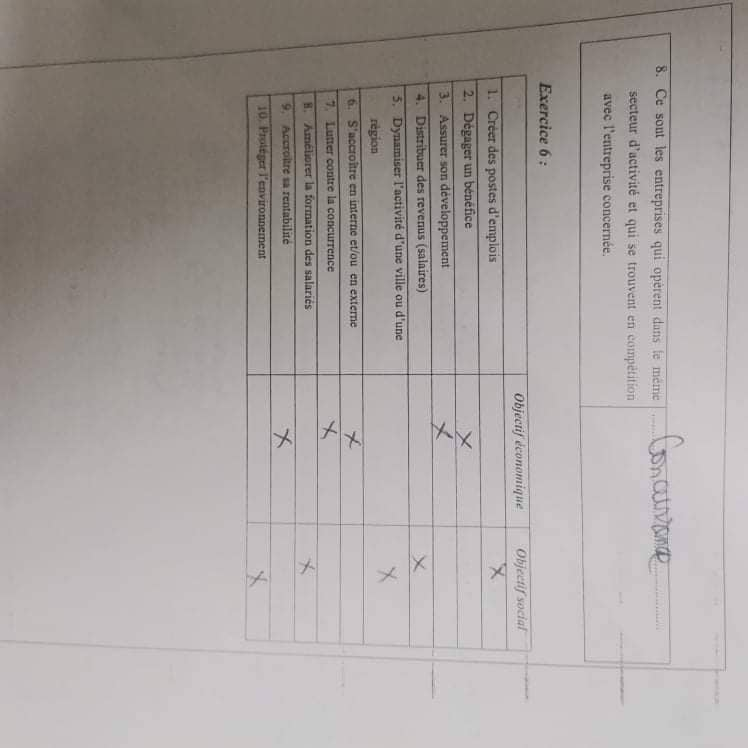 8. Ce sont les entreprises qui opèrent dans le même ........ Concurrence ....................
secteur d'activité et qui se trouvent en compétition
avec l'entreprise concernée.
Exercice 6 :
Objectif économique Objectif social
1. Créer des postes d'emplois X
2. Dégager un bénéfice X
3. Assurer son développement X
4. Distribuer des revenus (salaires) X
5. Dynamiser l'activité d'une ville ou d'une X
région
6. S'accroître en interne et/ou en externe X
7. Lutter contre la concurrence X
8. Améliorer la formation des salariés X
9. Accroître sa rentabilité X
10. Protéger l'environnement X